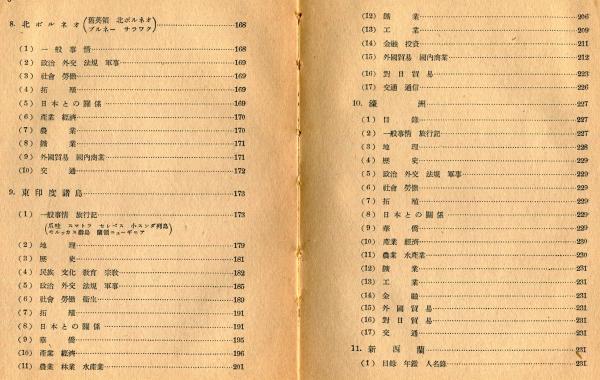 8. 北ボルネオ(舊英領 北ボルネオ ブルネー サラワク)……168
(1) 一般事情……168
(2) 政治 外交 法規 軍事……169
(3) 社會 勞働……169
(4) 拓殖……169
(5) 日本との關係……169
(6) 產業 經濟……170
(7) 農業……170
(8) 鑛業……171
(9) 外國貿易 國內商業……171
(10) 交通……172
9. 東印度諸島……173
(1) 一般事情 旅行記……173
(爪哇 スマトラ セレベス 小スンダ列島
モルッカス群島 蘭領ニューギニア)
(2) 地理……179
(3) 歷史……181
(4) 民族 文化 敎育 宗敎……182
(5) 政治 外交 法規 軍事……185
(6) 社會 勞働 衞生……189
(7) 拓殖……191
(8) 日本との關係……191
(9) 華僑……195
(10) 產業 經濟……196
(11) 農業 林業 水產業……201
(12) 鑛業……206
(13) 工業……209
(14) 金融 投資……211
(15) 外國貿易 國內商業……212
(16) 對日貿易……223
(17) 交通 通信……226
10. 濠洲……227
(1) 目錄……227
(2) 一般事情 旅行記……227
(3) 地理……228
(4) 歷史……229
(5) 政治 外交 法規 軍事……229
(6) 社會 勞働……229
(7) 拓殖……229
(8) 日本との關係……229
(9) 華僑……229
(10) 產業 經濟……230
(11) 農業 水產業……230
(12) 鑛業……231
(13) 工業……231
(14) 金融……231
(15) 外國貿易……231
(16) 對日貿易……231
(17) 交通……231
11. 新西蘭……231
(1) 目錄 年鑑 人名錄……231